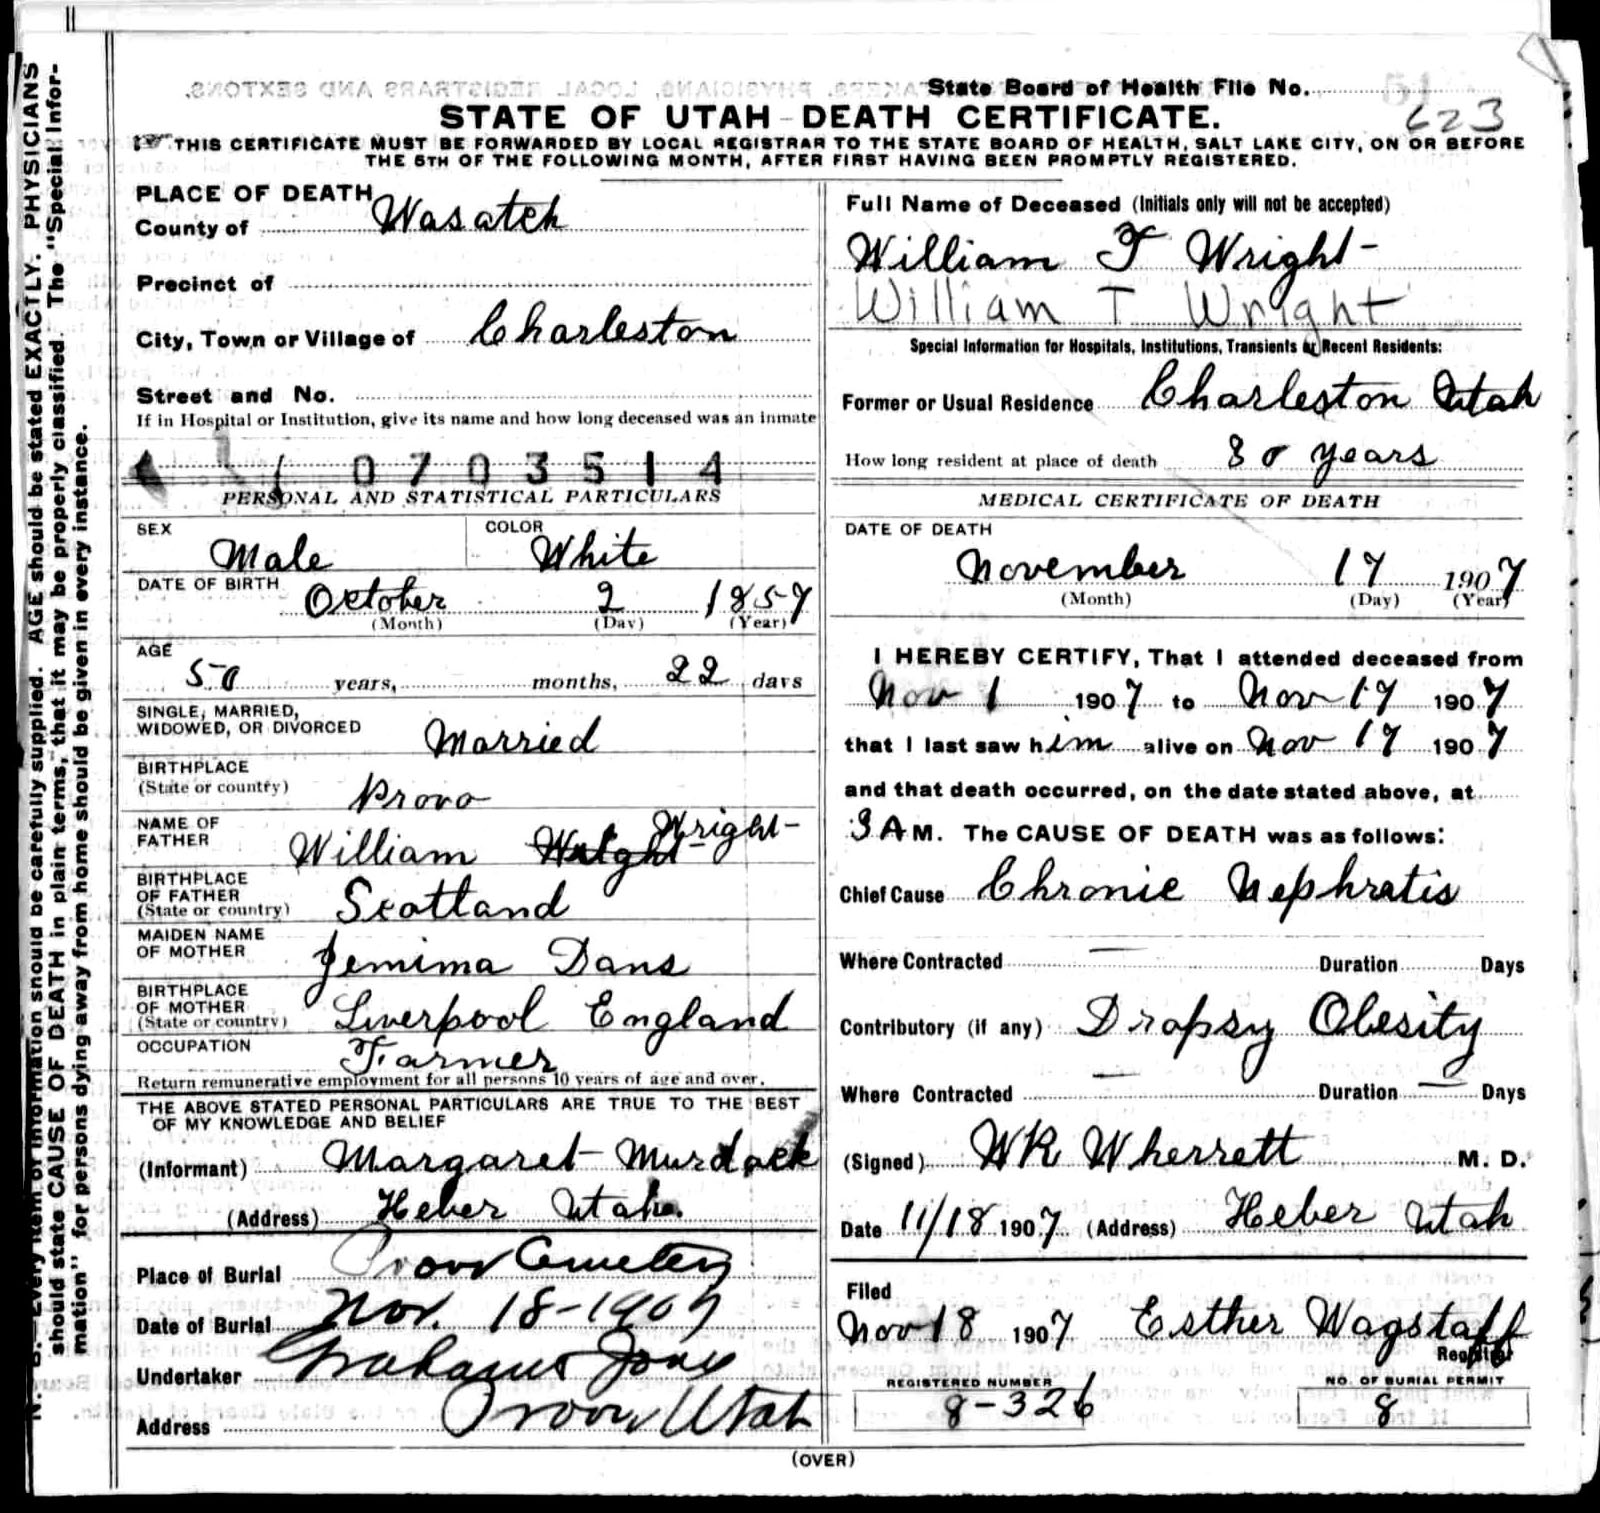 N. B.—Every item of information should be carefully supplied. AGE should be stated EXACTLY. PHYSICIANS
should state CAUSE OF DEATH in plain terms, that it may be properly classified. The "Special Infor-
mation" for persons dying away from home should be given in every instance.
State Board of Health File No.
623
STATE OF UTAH—DEATH CERTIFICATE.
THIS CERTIFICATE MUST BE FORWARDED BY LOCAL REGISTRAR TO THE STATE BOARD OF HEALTH, SALT LAKE CITY, ON OR BEFORE
THE 5TH OF THE FOLLOWING MONTH, AFTER FIRST HAVING BEEN PROMPTLY REGISTERED.
PLACE OF DEATH
County of Wasatch
Precinct of
City, Town or Village of Charleston
Street and No.
If in Hospital or Institution, give its name and how long deceased was an inmate
0703514
PERSONAL AND STATISTICAL PARTICULARS
SEX Male COLOR White
DATE OF BIRTH October 2 1857
(Month) (Day) (Year)
AGE
50 years, months, 22 days
SINGLE, MARRIED,
WIDOWED, OR DIVORCED Married
BIRTHPLACE
(State or country) Provo
NAME OF
FATHER William Wright Wright
BIRTHPLACE
OF FATHER
(State or country) Scotland
MAIDEN NAME
OF MOTHER Jemima Dans
BIRTHPLACE
OF MOTHER
(State or country) Liverpool England
OCCUPATION Farmer
Return remunerative employment for all persons 10 years of age and over.
THE ABOVE STATED PERSONAL PARTICULARS ARE TRUE TO THE BEST
OF MY KNOWLEDGE AND BELIEF
(Informant) Margaret Murdock
(Address) Heber Utah.
Place of Burial Provo Cemetery
Date of Burial Nov. 18-1907
Undertaker Grahams Jones
Address Provo Utah
Full Name of Deceased (Initials only will not be accepted)
William F Wright
William T Wright
Special Information for Hospitals, Institutions, Transients or Recent Residents:
Former or Usual Residence Charleston Utah
How long resident at place of death 30 years
MEDICAL CERTIFICATE OF DEATH
DATE OF DEATH
November 17 1907
(Month) (Day) (Year)
I HEREBY CERTIFY, That I attended deceased from
Nov 1 1907 to Nov 17 1907
that I last saw him alive on Nov 17 1907
and that death occurred, on the date stated above, at
3 A M. The CAUSE OF DEATH was as follows:
Chief Cause Chronic Nephratis
Where Contracted — Duration Days
Contributory (if any) Dropsy Obesity
Where Contracted — Duration — Days
(Signed) WR Wherrett M. D.
Date 11/18 1907 (Address) Heber Utah
Filed
Nov 18 1907 Esther Wagstaff
Registrar
REGISTERED NUMBER
8-326
NO. OF BURIAL PERMIT
8
(OVER)